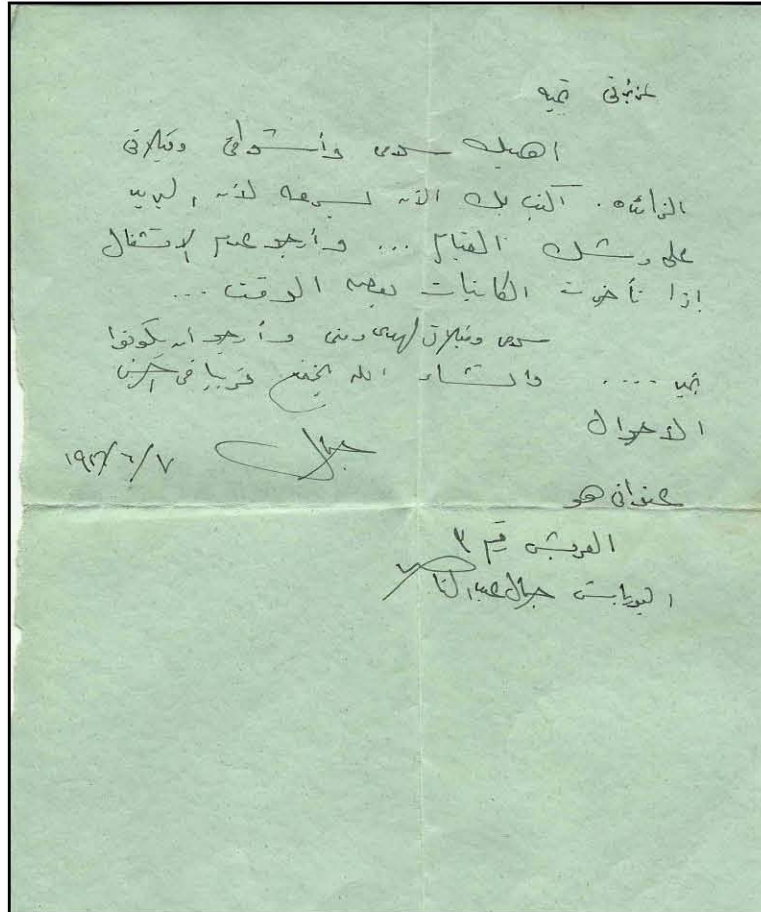 عزيزتى تحيه
أهديك سلامى وأشواقى وقبلاتى
الزائده. أكتب لك الآن بسرعه لأن البريد
على وشك القيام ... وأرجو عدم الانشغال
إذا تأخرت الكتابات بعض الوقت ...
سلامى وقبلاتى لهدى ومنى وأرجو أن يكونوا
بخير .... وانشاء الله نجتمع قريبا فى أحسن
الأحوال
جمال ٧/٦/١٩٤٨
عنوانى هو
العريش رقم ٣
اليوزباشى جمال عبد الناصر